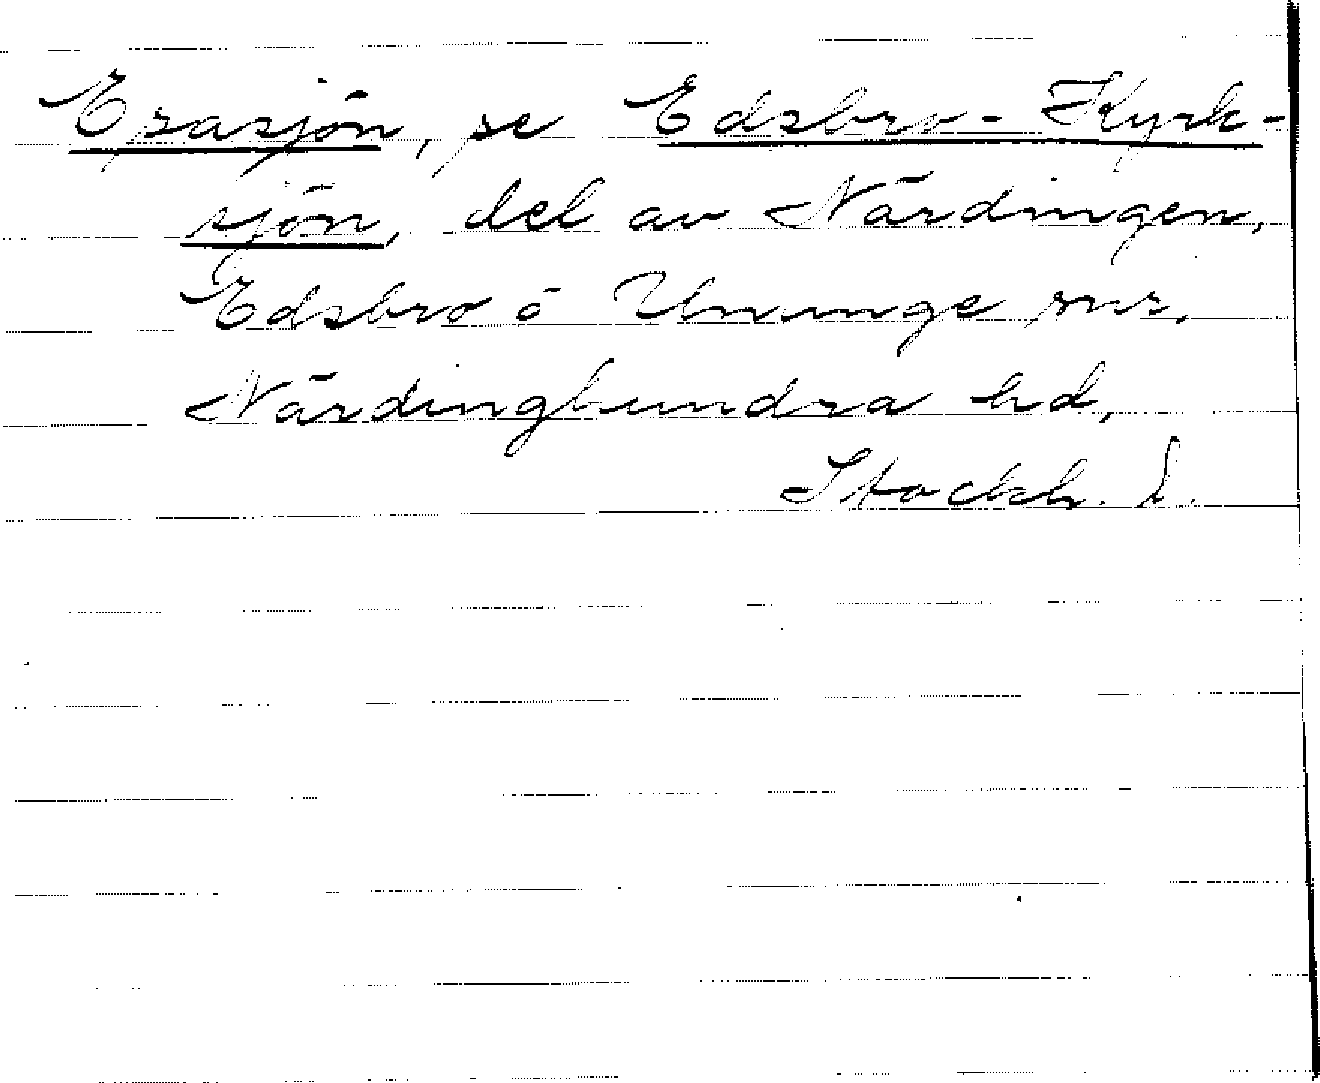 Erasjön, se Edsbro-Kyrk-
sjön, del av Närdingen,
Edsbro o Ununge snr.
Närdinghundra hd,
Stockh. l.